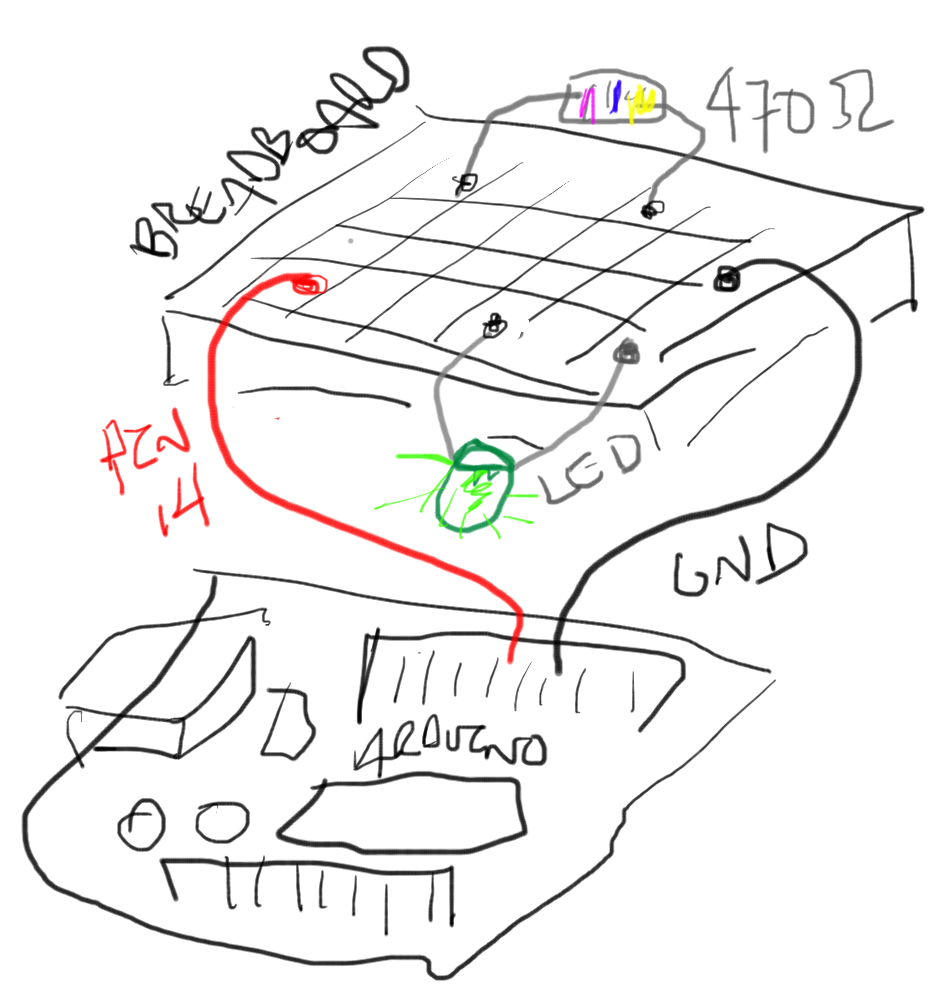 BREADBOARD
470Ω
PIN
14
LED
GND
ARDUINO